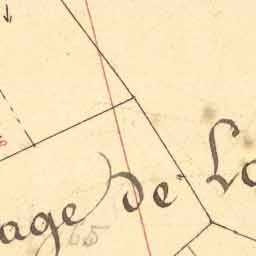 age de La
65